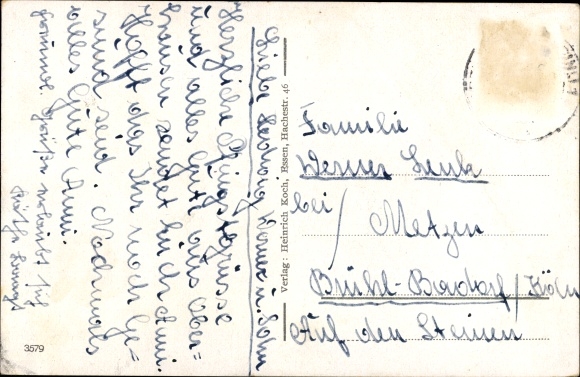 Liebe Hedwig, Werner u. Sohn
Herzliche Pfingstgrüsse
und alles Gute aus Ober=
hausen sendet Euch Anni.
Hofft das Ihr noch Ge=
sund seid. Nochmals
alles Gute Anni.
Grüße erlaubt sich
Käthe
Verlag: Heinrich Koch, Essen, Hachestr. 46
Familie
Werner Lenk
bei / Metzen
Brühl-Badorf / Köln
Auf den Steinen
3579